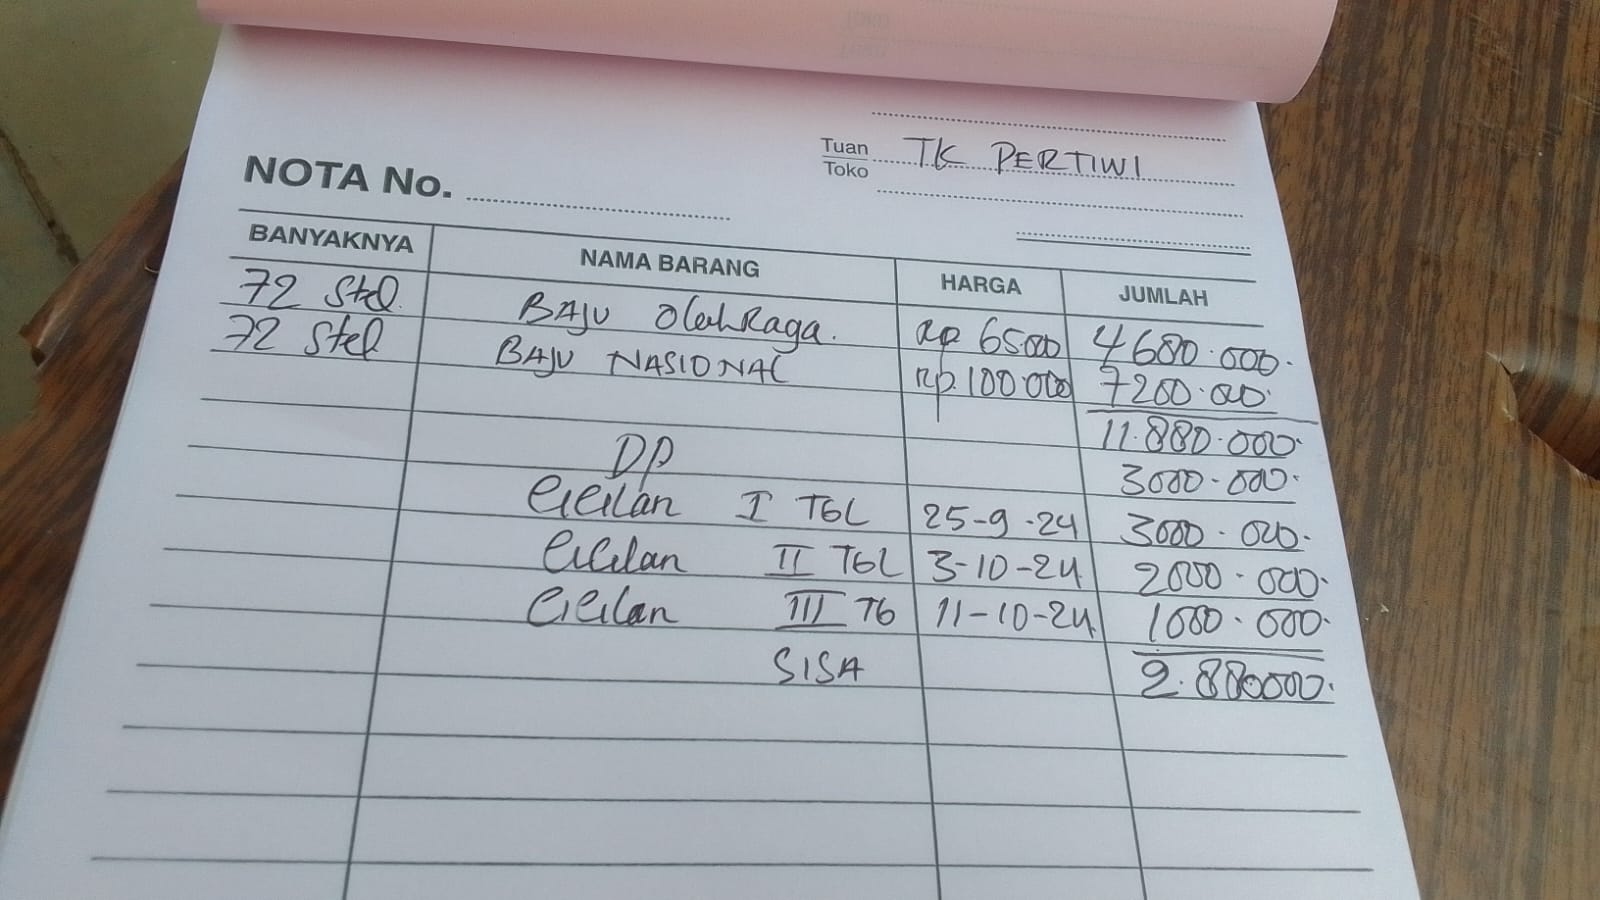 Tuan
Toko
TK PERTIWI
NOTA No.
BANYAKNYA NAMA BARANG HARGA JUMLAH
72 Stel. BAJU OlahRaga. Rp 65000 4680.000.
72 Stel BAJU NASIONAL Rp.100.000 7200.000.
11.880.000.
DP 3000.000.
CiCilan I TGL 25-9-24 3000.000.
CiCilan II TGL 3-10-24 2000.000.
CiCilan III TG 11-10-24 1000.000.
SISA 2.880000.